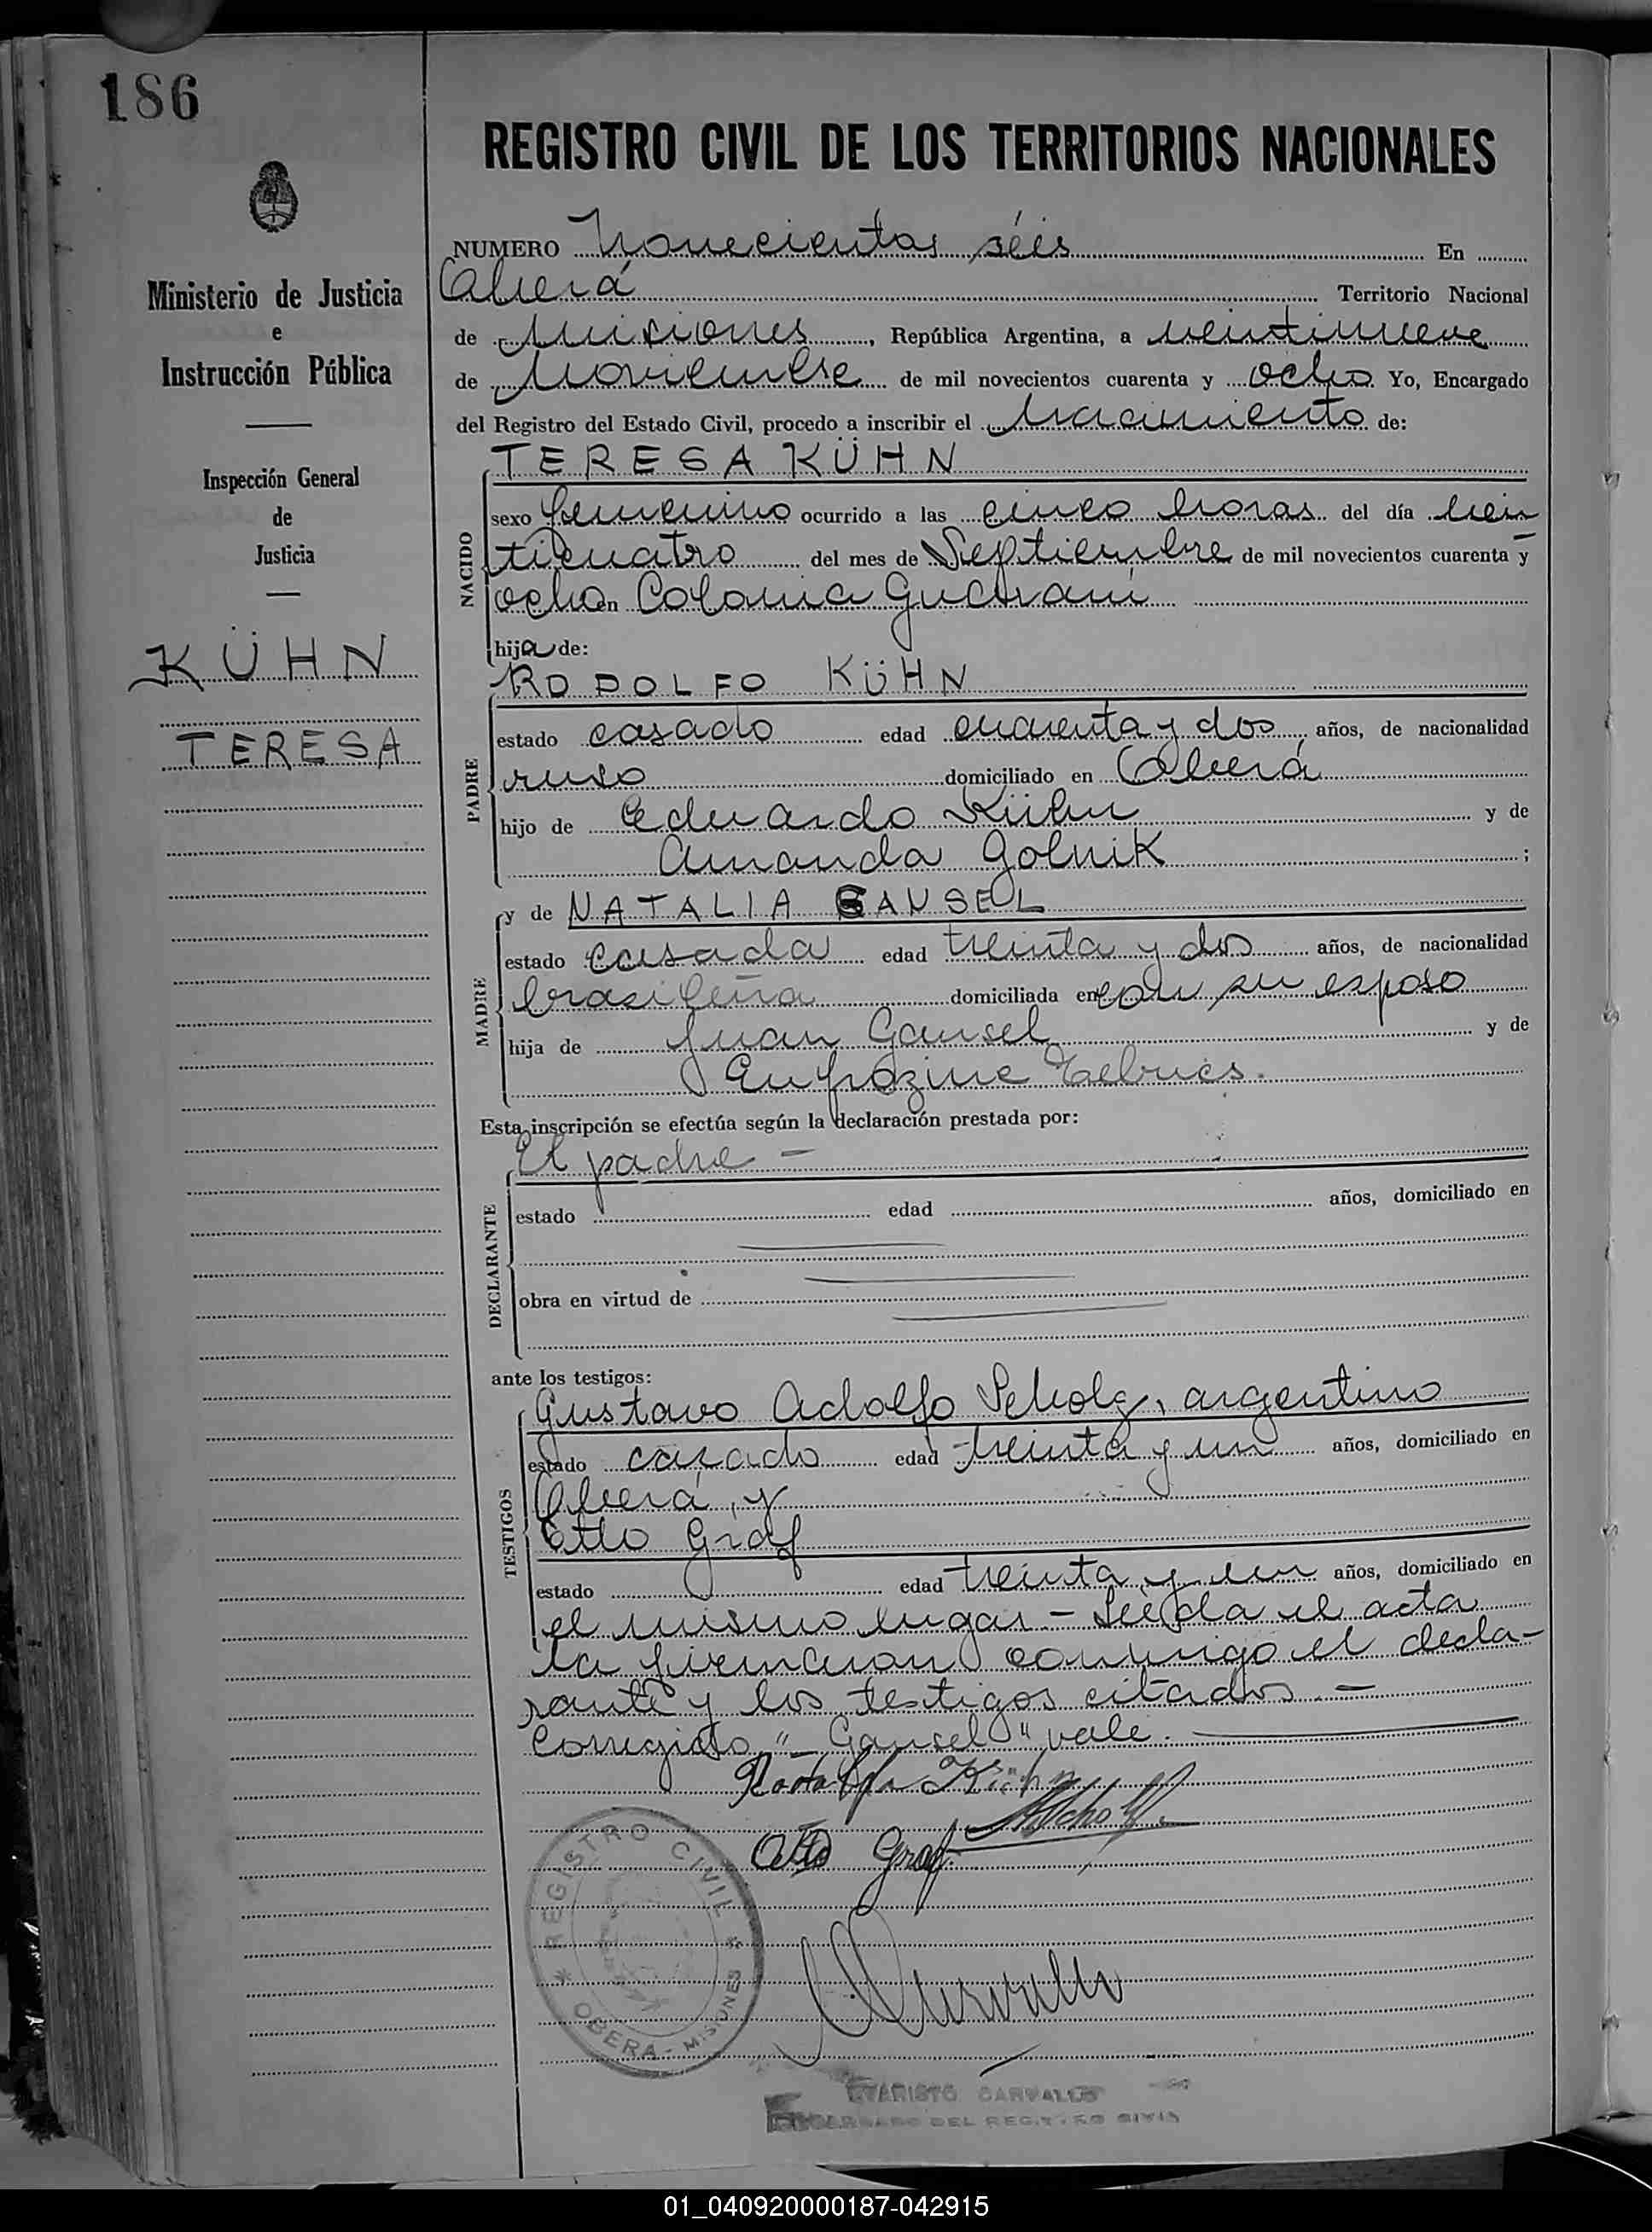 186
REGISTRO CIVIL DE LOS TERRITORIOS NACIONALES
Ministerio de Justicia
e
Instrucción Pública
Inspección General
de
Justicia
KÜHN
TERESA
NUMERO Novecientos séis En
Oberá Territorio Nacional
de Misiones, República Argentina, a veintinueve
de Noviembre de mil novecientos cuarenta y ocho Yo, Encargado
del Registro del Estado Civil, procedo a inscribir el Nacimiento de:
NACIDO
TERESA KÜHN
sexo femenino ocurrido a las cinco horas del día vein
ticuatro del mes de Septiembre de mil novecientos cuarenta y
ocho en Colonia Guaraní
hija de:
PADRE
RODOLFO KÜHN
estado casado edad cuarenta y dos años, de nacionalidad
ruso domiciliado en Oberá
hijo de Eduardo Kühn y de
Amanda Golnik;
MADRE
y de NATALIA GANSEL
estado casada edad treinta y dos años, de nacionalidad
brasileña domiciliada en con su esposo
hija de Juan Gansel y de
Eufrozine
Esta inscripción se efectúa según la declaración prestada por:
DECLARANTE
El padre -
estado edad años, domiciliado en
obra en virtud de
ante los testigos:
TESTIGOS
Gustavo Adolfo Scholz, argentino
estado casado edad treinta y un años, domiciliado en
Oberá, y
Otto Graf
estado edad treinta y un años, domiciliado en
el mismo lugar - Leída el acta
la firmaron conmigo el decla-
rante y los testigos citados. -
Corregido "Gansel" vale.
Rodolfo Kühn
Scholz
Otto Graf
REGISTRO CIVIL
OBERA - MISIONES
EVARISTO CARVALLO
ENCARGADO DEL REGISTRO CIVIL
01_040920000187-042915